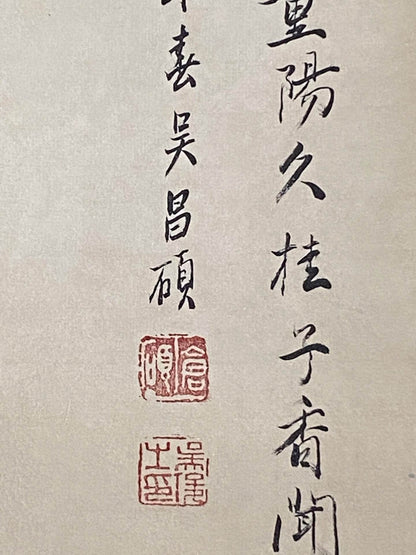 重陽久桂子香聞
春吴昌碩
倉碩
吴俊之印